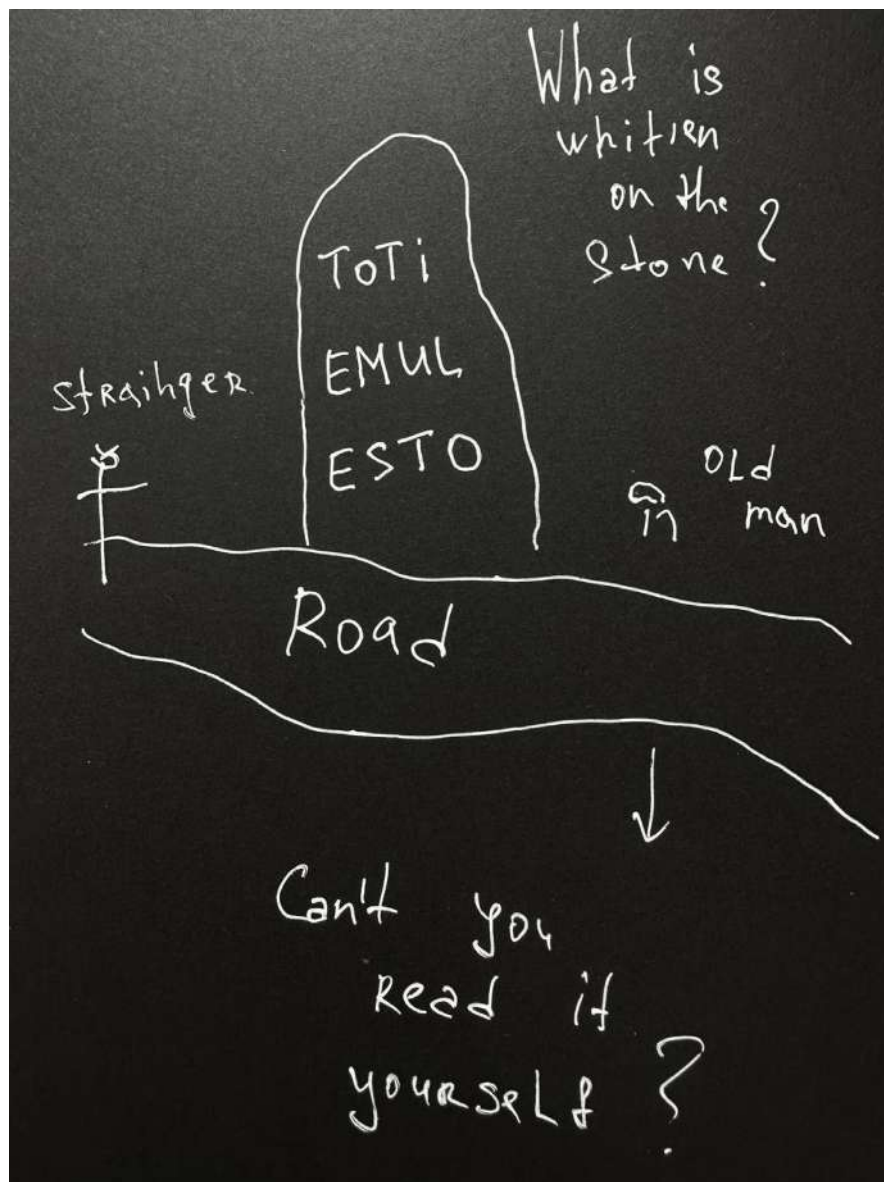 What is
whitten
on the
stone?
ToTi
EMUL
ESTO
strainger
OLd
man
Road
Can't you
Read it
yourself?